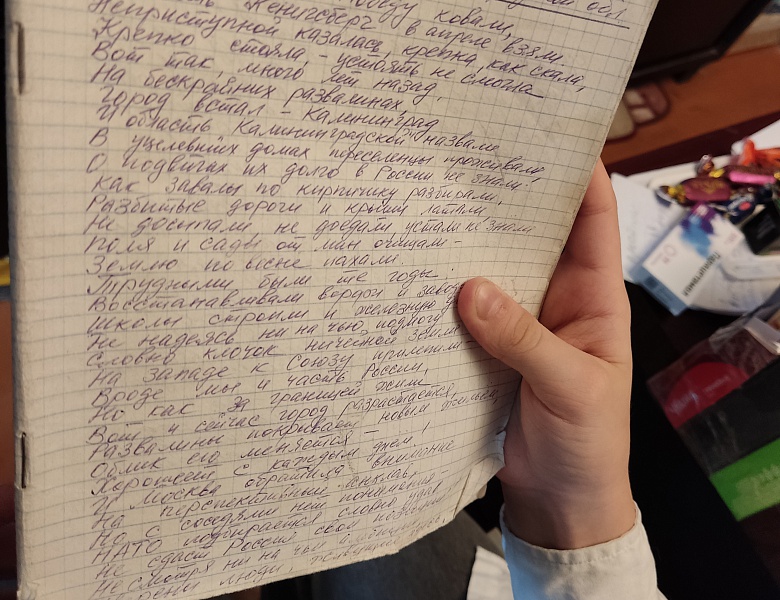 победу ковали,
Кенигсберг в апреле взяли.
Неприступной казалась, крепка, как скала,
Крепко стояла, - устоять не смогла
Вот так, много лет назад,
На бескрайних развалинах
Город встал - Калининград
И область "Калининградской" назвали
В уцелевших домах переселенцы проживали,
О подвигах их долго в России не знали!
Как завалы по кирпичику разбирали,
Разбитые дороги и крыши латали
Не досыпали, не доедали, устали не знали
Поля и сады от мин очищали -
Землю по весне пахали.
Трудными были те годы!
Восстанавливали город и
Школы строили и железную
Не надеясь ни на чью подмогу
Словно клочок ничейной земли
На западе к Союзу прилепили
Вроде мы и часть России,
Но как за границей жили
Вот и сейчас город разрастается,
Развалины покрывает новым
Облик его меняется -
Хорошеет с каждым днем!
И Москва обратила внимание
На перспективный анклав,
Но с соседями нет понимания -
НАТО подкрается словно удав
Не сдаст Россия свои
Несмотря ни на чьи
люди,